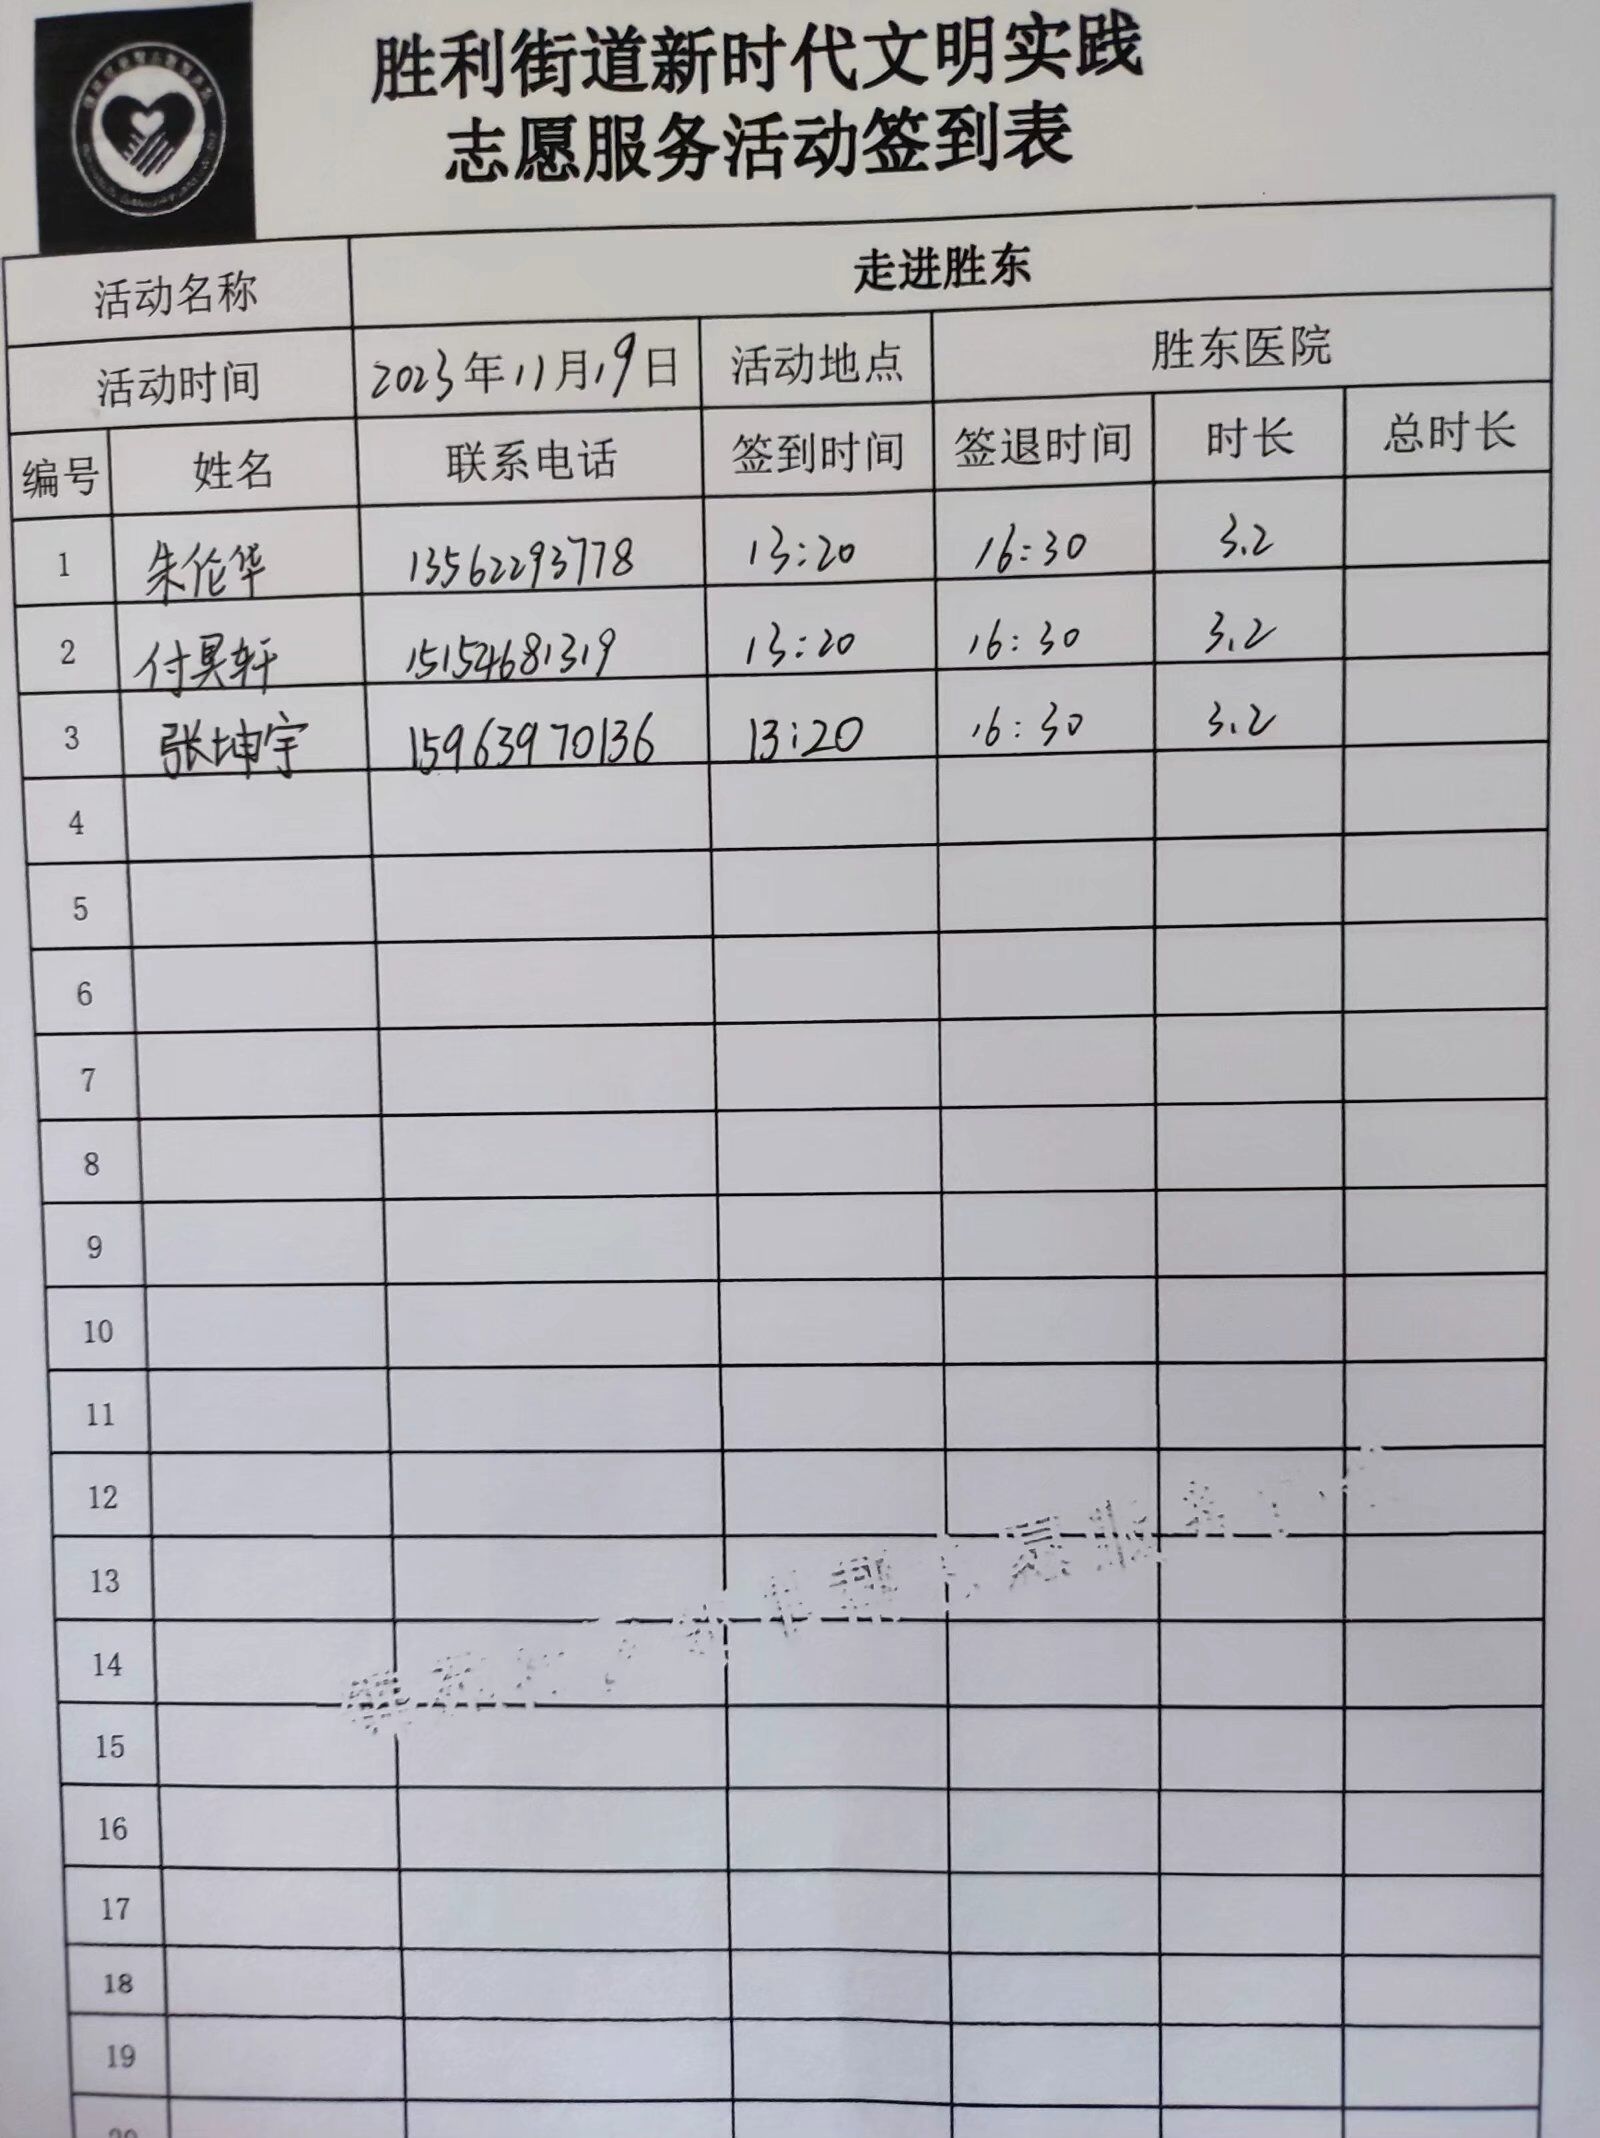 胜利街道新时代文明实践
志愿服务活动签到表
活动名称 走进胜东
活动时间 2023年11月19日 活动地点 胜东医院
编号 姓名 联系电话 签到时间 签退时间 时长 总时长
1 朱伦华 13562293778 13:20 16:30 3.2
2 付昊轩 15154681319 13:20 16:30 3.2
3 张坤宇 15963970136 13:20 16:30 3.2
4
5
6
7
8
9
10
11
12
13
14
15
16
17
18
19